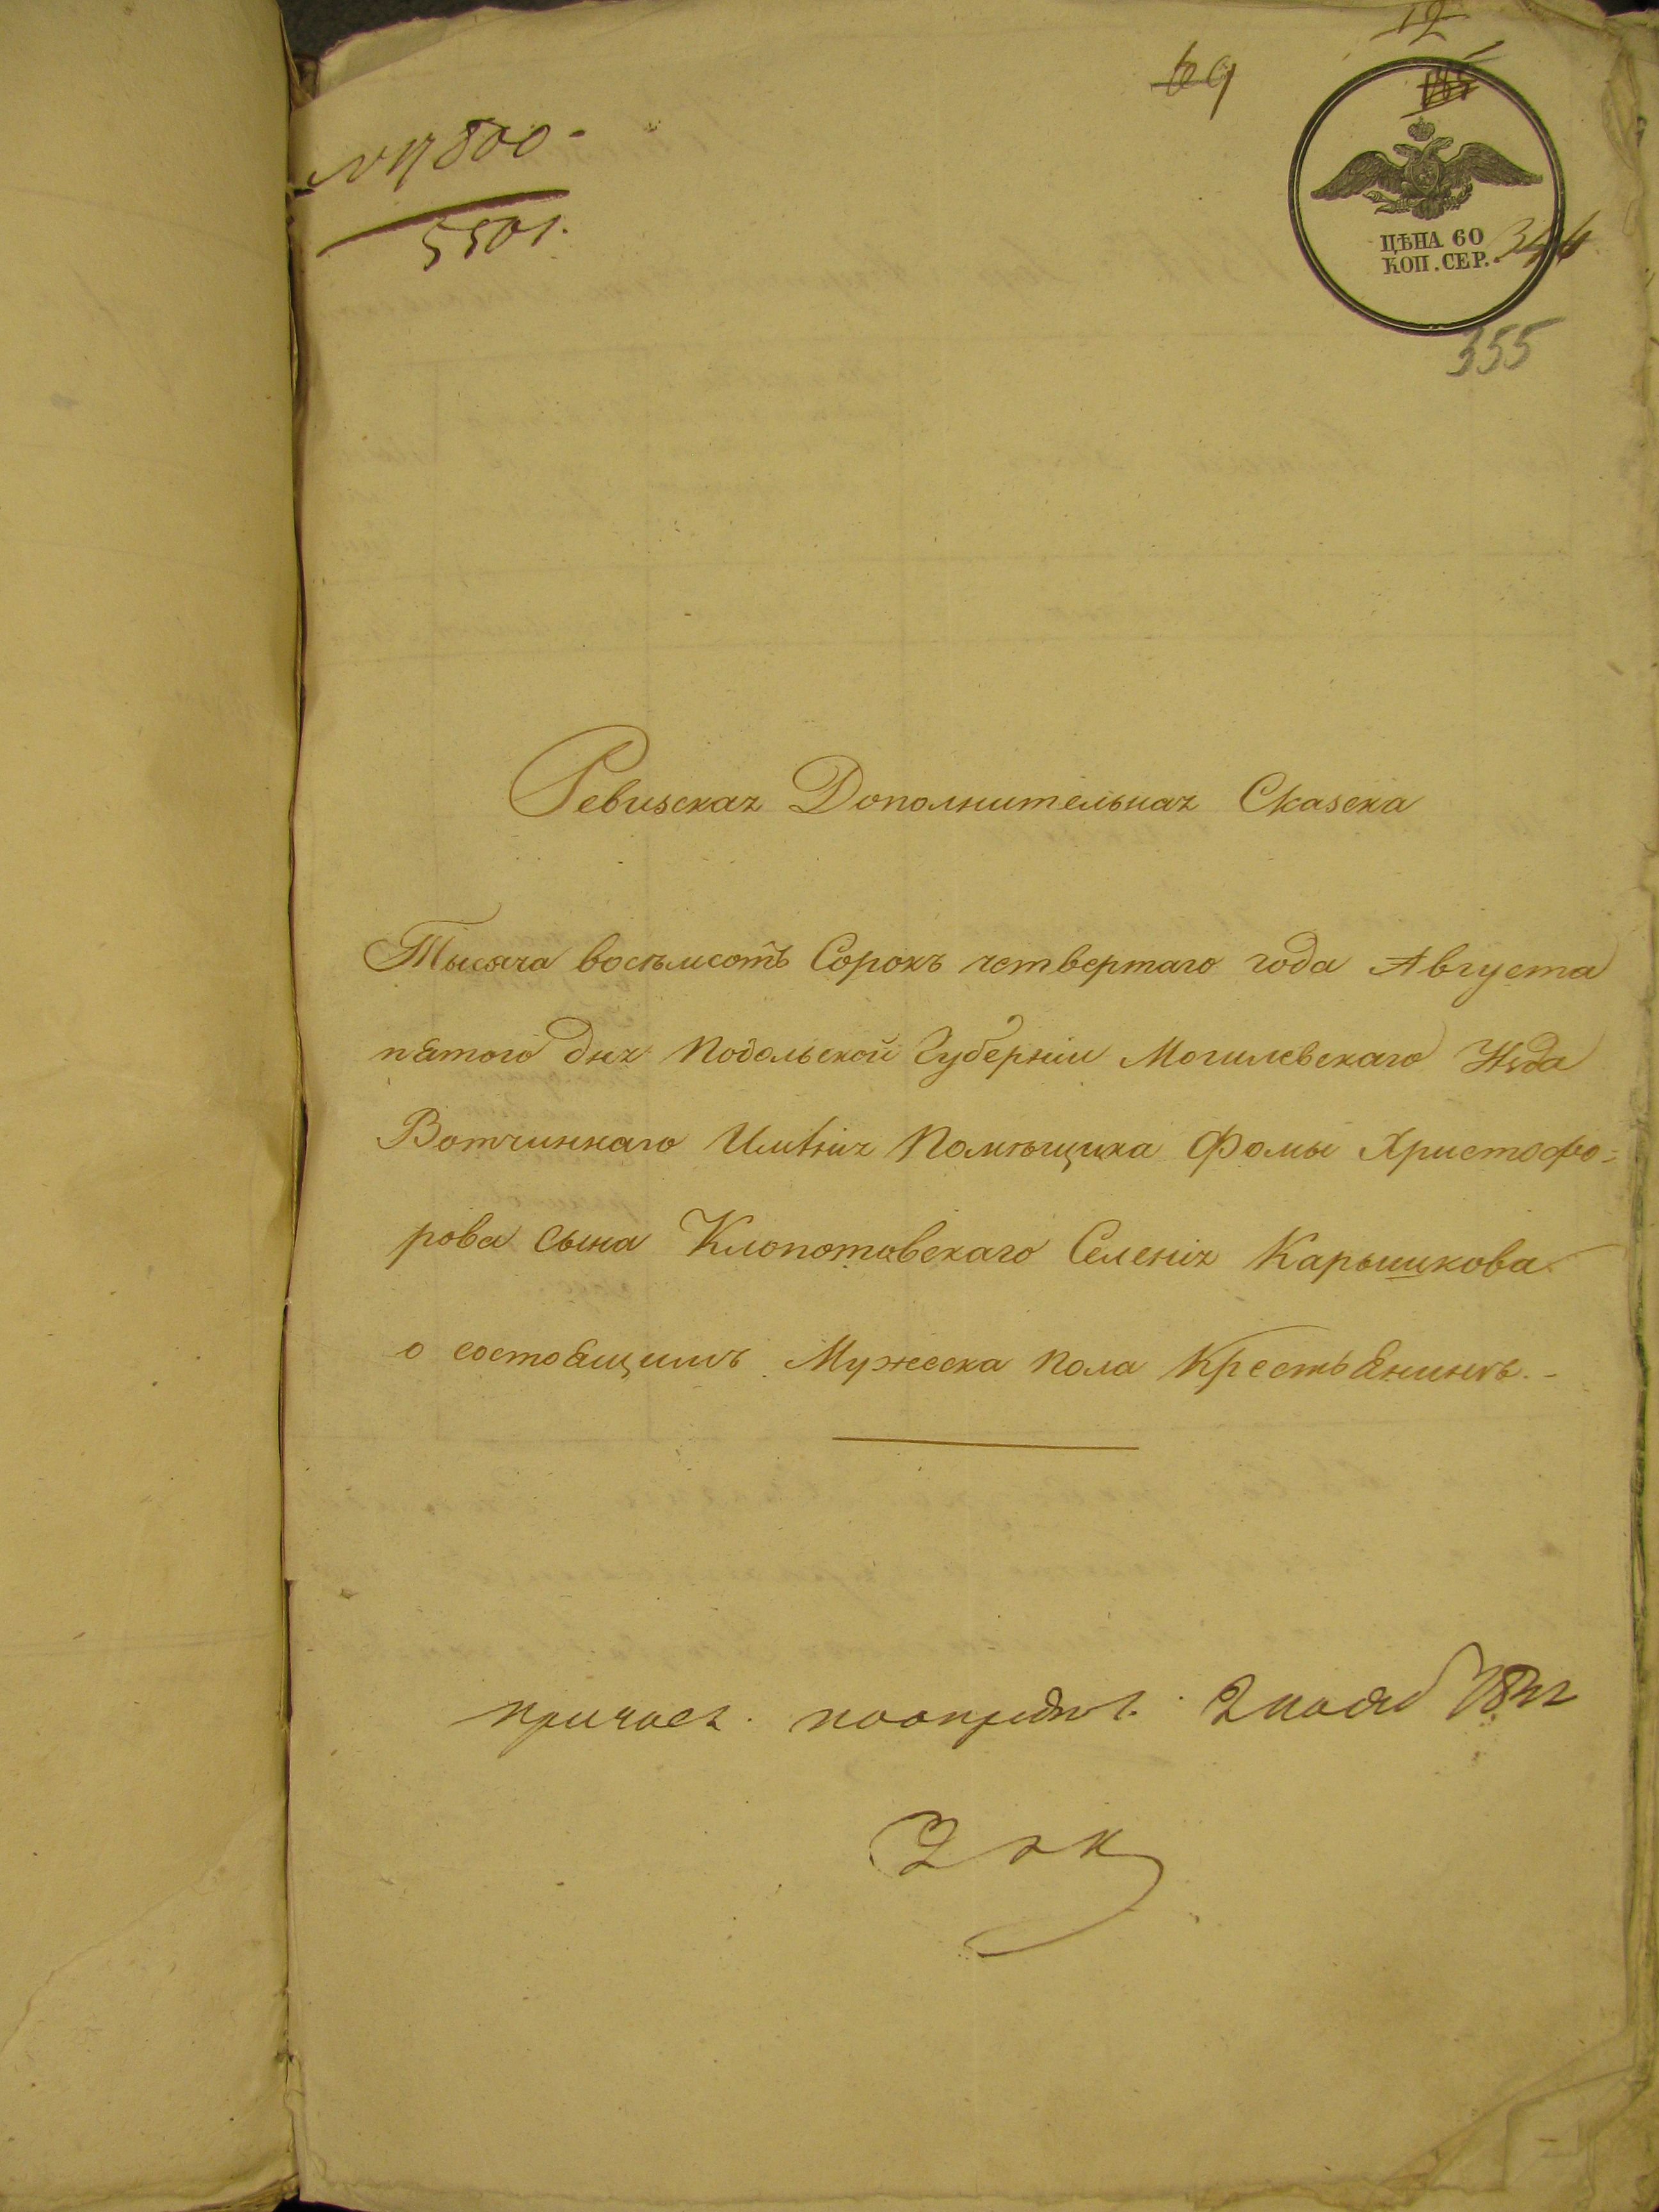 12
69
№ 17800 -
5501.
ЦѢНА 60
КОП. СЕР.
355
Ревизская Дополнительная Сказска
Тысяча восъмсотъ Сорокъ четвертаго года Августа
пятого дня Подольской Губерніи Могилевскаго Уѣзда
Вотчиннаго Имѣнія Помѣщика Фомы Христофо=
рова сына Клопотовскаго Селенія Карышкова
о состоящимъ Мужеска пола Крестьянинѣ. -
2 нояб